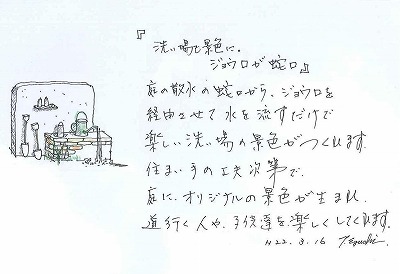 『洗い場も景色に。
ジョウロが蛇口』
庭の散水の蛇口から、ジョウロを
経由させて水を流すだけで
楽しい洗い場の景色がつくれます。
住まい手の工夫次第で、
庭に、オリジナルの景色が生まれ、
道行く人や、子供達を楽しくしてくれます。
H22.8.16 T.Eguchi